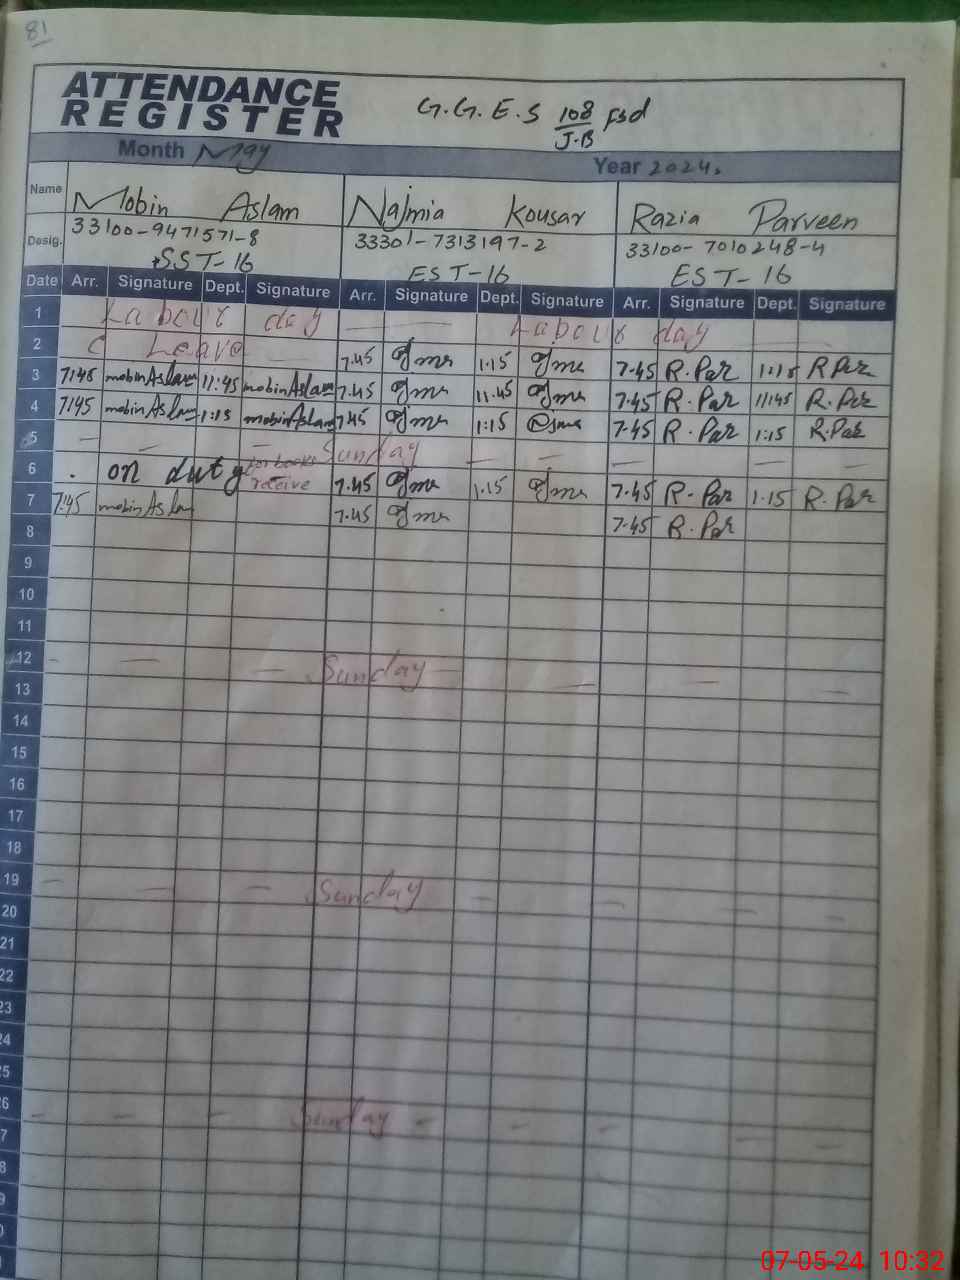 81
ATTENDANCE
REGISTER
G.G.E.S 108/J.B Fsd
Month May Year 2024.
Name Mobin Aslam Najmia Kousar Razia Parveen
Desig. 33100-9471571-8 33301-7313197-2 33100-7010248-4
SST-16 EST-16 EST-16
Date Arr. Signature Dept. Signature Arr. Signature Dept. Signature Arr. Signature Dept. Signature
1 Labour day Labour day
2 C Leave 7.45 1.15 7.45 R.Par 1:15 R Par
3 7:45 mobin Aslam 11:45 mobin Aslam 7.45 11.45 7.45 R.Par 11:45 R.Par
4 7:45 mobin Aslam 1:15 mobin Aslam 7.45 1:15 7.45 R.Par 1:15 R.Par
5 Sunday
6 on duty for books receive 7.45 1.15 7.45 R.Par 1.15 R.Par
7 7:45 mobin Aslam 7.45 7.45 R.Par
8
9
10
11
12 Sunday
13
14
15
16
17
18
19 Sunday
20
21
22
23
24
25
26 Sunday
7
8
9
07-05-24 10:32